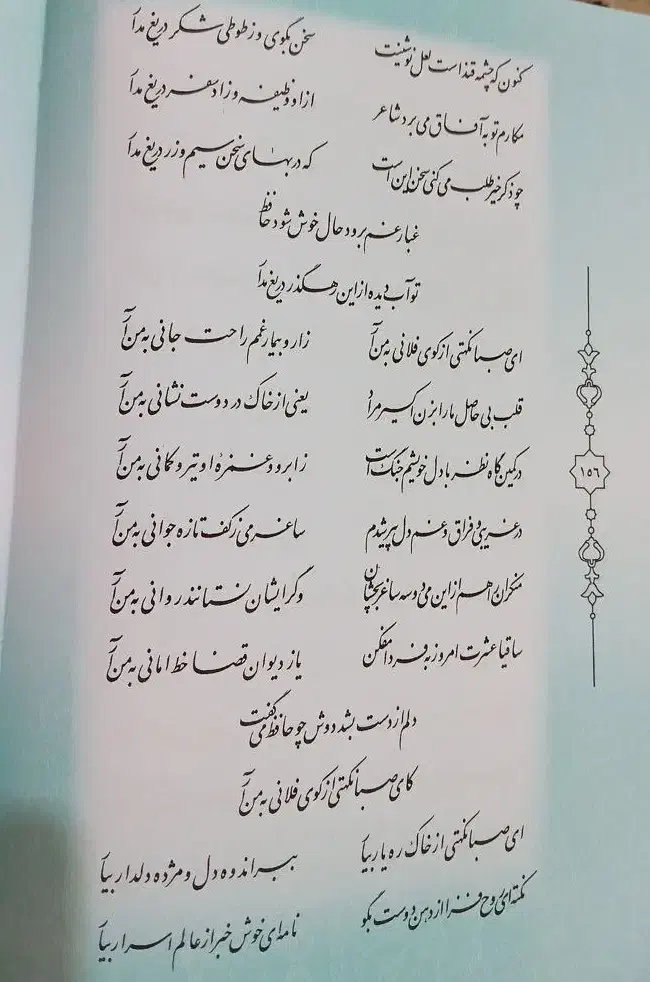 کنون که چشمه قند است لعل نوشینت
سخن بگوی و ز طوطی شکر دریغ مدار
مکارم تو به آفاق می برد شاعر
از او وظیفه و زاد سفر دریغ مدار
چو ذکر خیر طلب می کنی سخن این است
که در بهای سخن سیم و زر دریغ مدار
غبار غم برود حال خوش شود حافظ
تو آب دیده از این رهگذر دریغ مدار
ای صبا نکهتی از کوی فلانی به من آر
زار و بیمار غمم راحت جانی به من آر
قلب بی حاصل ما را بزن اکسیر مراد
یعنی از خاک در دوست نشانی به من آر
در کمین گاه نظر با دل خویشم جنگ است
ز ابرو و غمزه او تیر و کمانی به من آر
در غریبی و فراق و غم دل پیر شدم
ساغر می ز کف تازه جوانی به من آر
منکران را هم از این می دو سه ساغر بچشان
وگر ایشان نستانند روانی به من آر
ساقیا عشرت امروز به فردا مفکن
یا ز دیوان قضا خط امانی به من آر
دلم از دست بشد دوش چو حافظ می گفت
کای صبا نکهتی از کوی فلانی به من آر
ای صبا نکهتی از خاک ره یار بیار
ببر اندوه دل و مژده دلدار بیار
نکته ای روح فزا از دهن دوست بگو
نامه ای خوش خبر از عالم اسرار بیار
۱۵۶